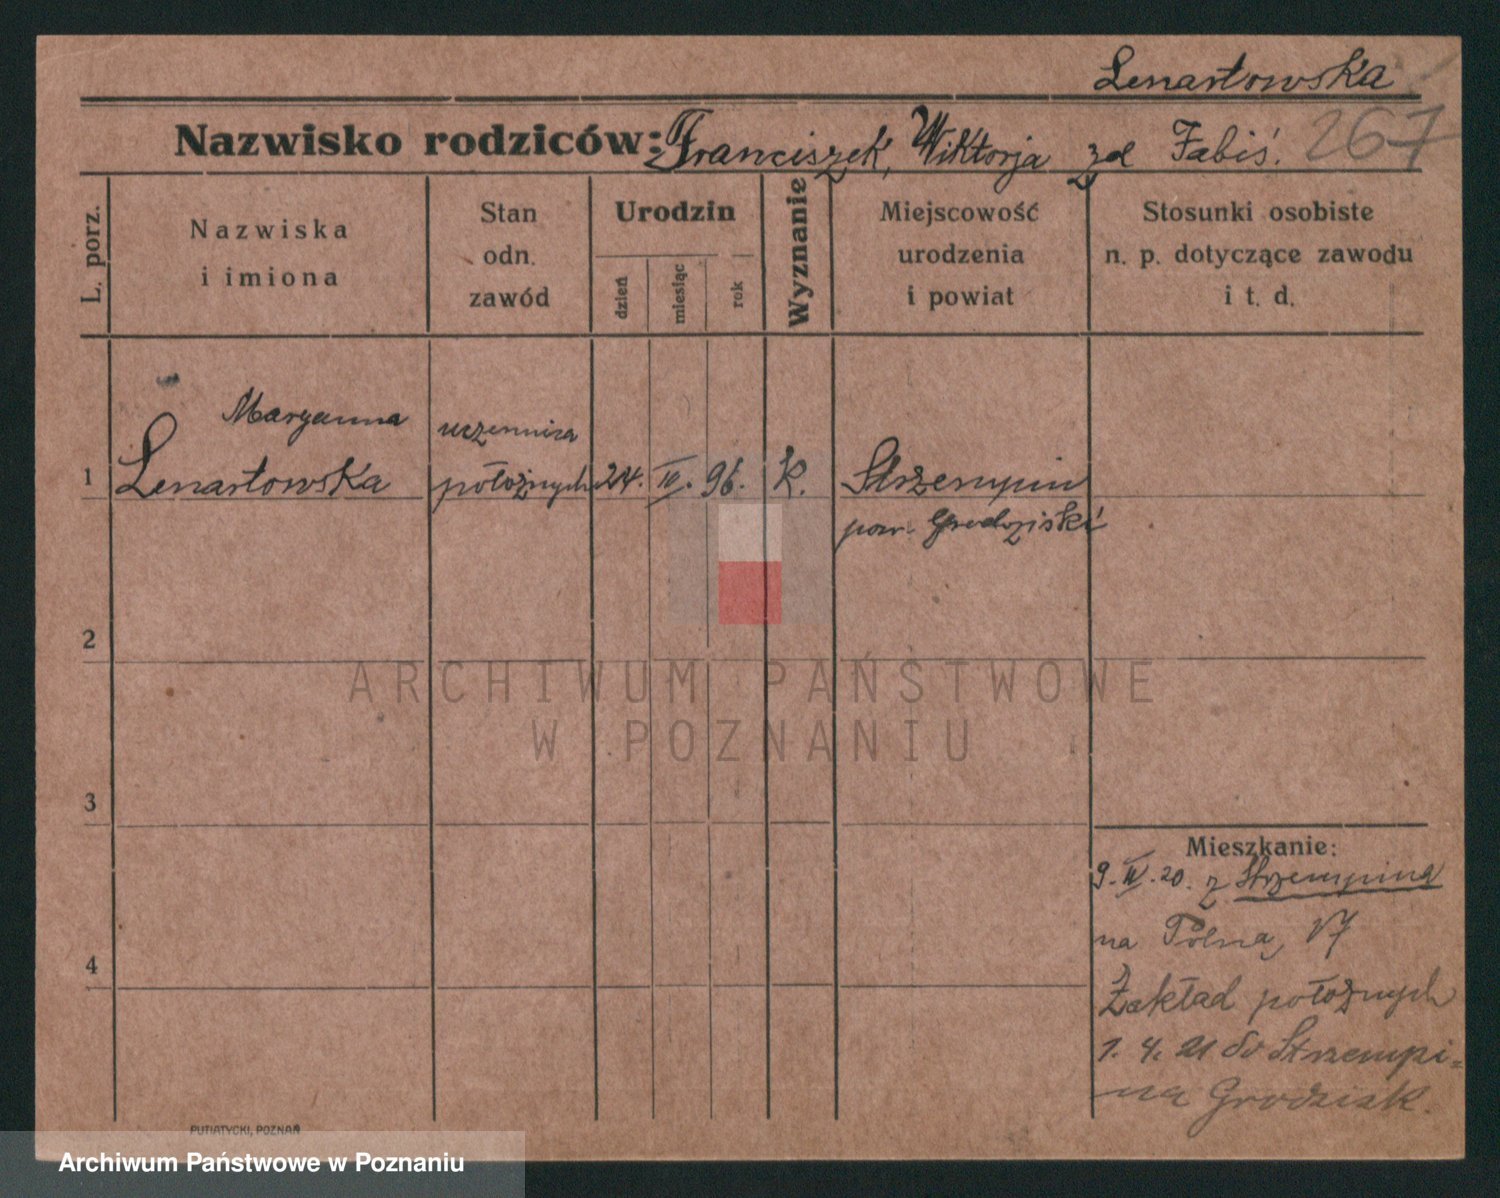 Lenartowska
Nazwisko rodziców: Franciszek, Wiktorja zd Fabiś. 267
L. porz.
Nazwiska
i imiona
Stan
odn.
zawód
Urodzin
dzień
miesiąc
rok
Wyznanie
Miejscowość
urodzenia
i powiat
Stosunki osobiste
n. p. dotyczące zawodu
i t. d.
Maryanna uczennica
1 Lenartowska położnych 24. 96. K. Strzempin
pow. Grodziski
2
ARCHIWUM PAŃSTWOWE
W POZNANIU
3
Mieszkanie:
9. IV. 20. z Strzempina
na Polną 17
4
Zakład położnych
1. 4. 21 do Strzempi=
na Grodzisk.
PUTIATYCKI, POZNAŃ
Archiwum Państwowe w Poznaniu